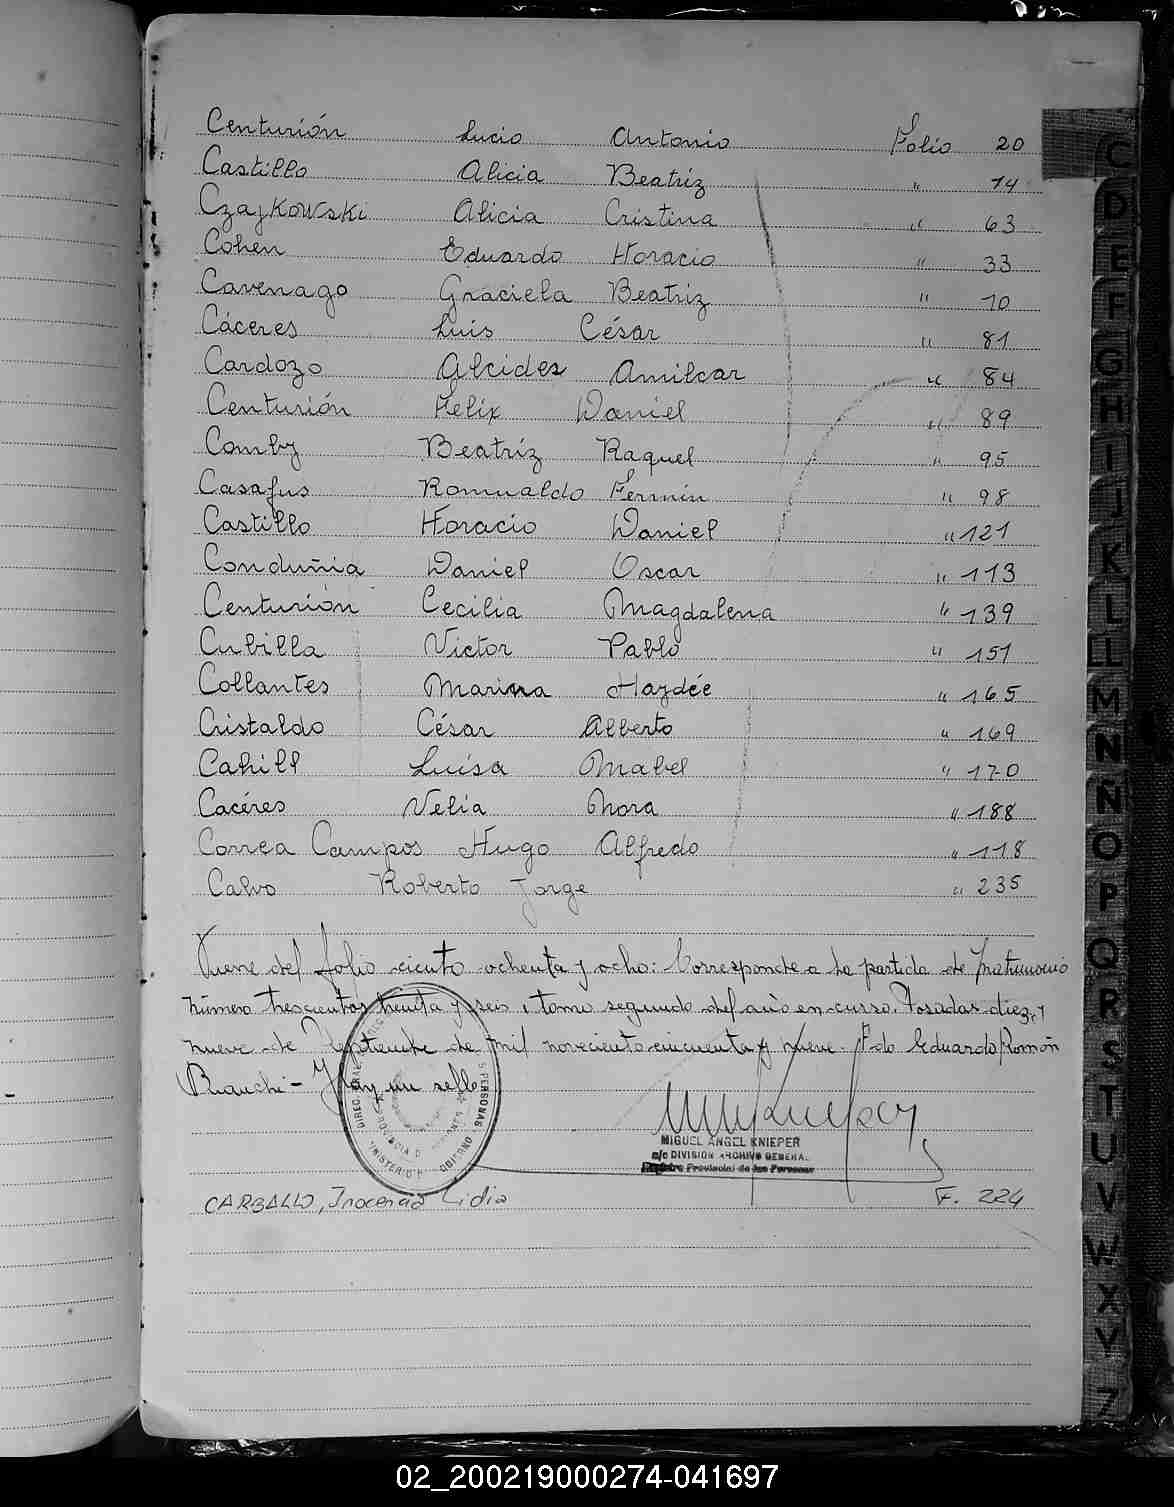 Centurión Lucio Antonio Folio 20
Castillo Alicia Beatriz " 14
Czajkowski Alicia Cristina " 63
Cohen Eduardo Horacio " 33
Cavenago Graciela Beatriz " 10
Cáceres Luis César " 81
Cardozo Alcides Amilcar " 84
Centurión Felix Daniel " 89
Comby Beatríz Raquel " 95
Casafus Romualdo Fermín " 98
Castillo Horacio Daniel " 121
Conduñia Daniel Oscar " 113
Centurión Cecilia Magdalena " 139
Cubilla Victor Pablo " 151
Collantes Marina Haydée " 165
Cristaldo César Alberto " 169
Cahill Luisa Mabel " 170
Cacéres Velia Nora " 188
Correa Campos Hugo Alfredo " 118
Calvo Roberto Jorge " 235
Viene del folio ciento ochenta y ocho: Corresponde a la partida de Matrimonio
número trescientos treinta y seis, tomo segundo del año en curso. Posadas diez y
nueve de Septiembre de mil novecientos cincuenta y nueve. Fdo Eduardo Román
Bianchi - Hay un sello
MIGUEL ANGEL KNIEPER
a/c DIVISION ARCHIVO GENERAL
Registro Provincial de las Personas
CARBALLO, Inocencia Lidia F. 224
C
D
E
F
G
H
I
J
K
L
LL
M
N
Ñ
O
P
Q
R
S
T
U
V
W
X
Y
Z
02_200219000274-041697